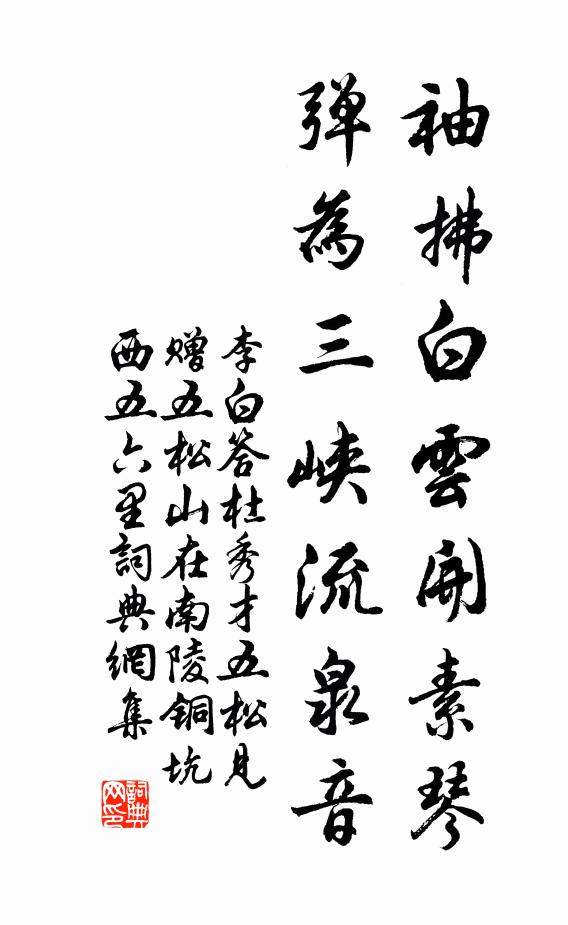 袖拂白雲開素琴
彈為三峽流泉音
李白答杜秀才五松見
贈五松山在南陵銅坑
西五六里詞典網集
詞典网印